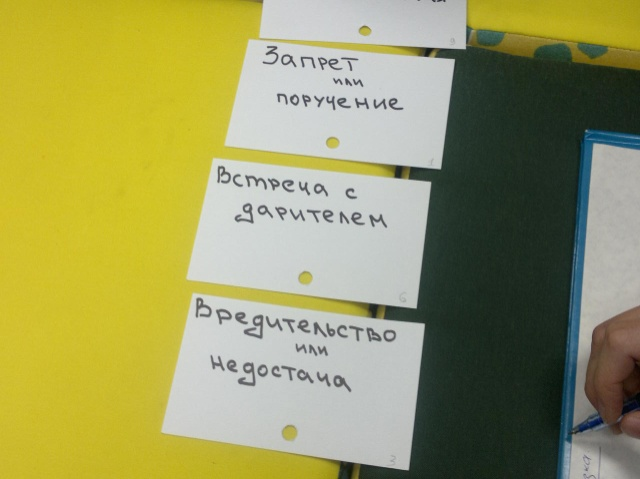 Запрет
или
поручение
Встреча с
дарителем
6
Вредительство
или
недостача
3